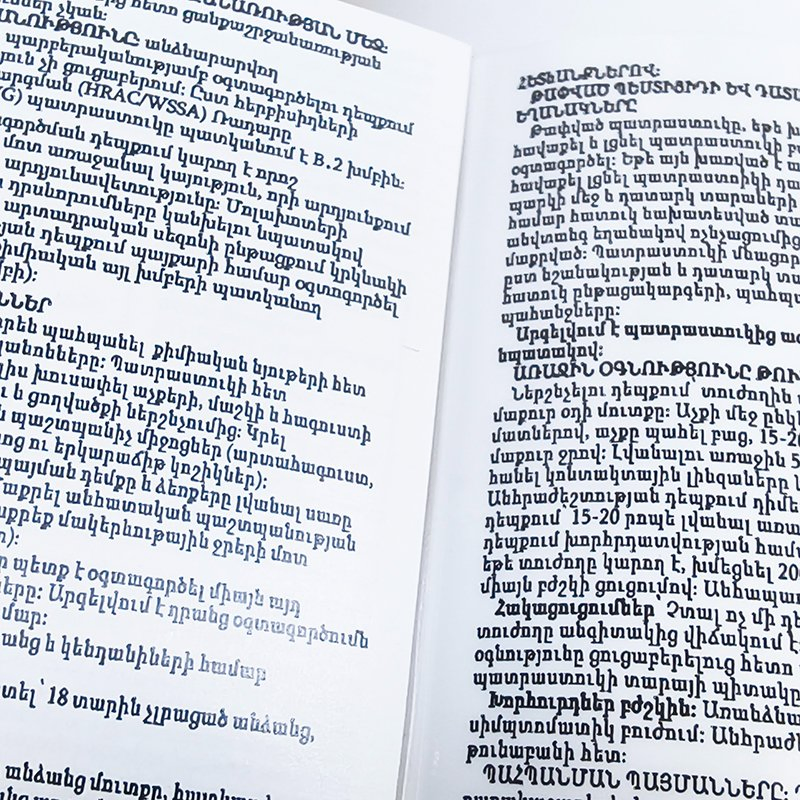 հետո ցանքաշրջանառության
ՅՈՒՆԸ անձնարարվող
պարբերականությամբ օգտագործելու դեպքում
չի ցուցաբերում: Ըստ հերբիսիդների
(HRAC/WSSA) Ռադարը
պատրաստուկը պատկանում է B.2 խմբին:
դեպքում կարող է որոշ
մոտ առաջանալ կայություն, որի արդյունքում
արդյունավետությունը: Մոլախոտերի
դրսևորումները կանխելու նպատակով
արտադրական սեզոնի ընթացքում կրկնակի
դեպքում պայքարի համար օգտոգործել
քիմիական այլ խմբերի պատկանող
պահպանել քիմիական նյութերի հետ
Պատրաստուկի հետ
լիս խուսափել աչքերի, մաշկի և հագուստի
և ցողվածքի ներշնչումից: Կրել
պաշտպանիչ միջոցներ (արտահագուստ,
ու երկարաճիտ կոշիկներ):
դեմքը և ձեռքերը լվանալ սառը
անհատական պաշտպանության
մակերևութային ջրերի մոտ
պետք է օգտագործել միայն այդ
Արգելվում է դրանց օգտագործումն
և կենդանիների համար
18 տարին չլրացած անձանց,
անձանց մուտքը,
ՀԵՏԵՎԱՆՔՆԵՐՈՎ:
ԹԱՓՎԱԾ ՊԵՍՏԻՑԻԴԻ ԵՎ ԴԱՏԱ
ԵՂԱՆԱԿՆԵՐԸ
Թափված պատրաստուկը, եթե
հավաքել և լցնել պատրաստուկի
օգտագործել: Եթե այն խառված է
հավաքել լցնել պատրաստոիկի
պարկի մեջ և դատարկ տարաների
համար հատուկ նախատեսված
անվտանգ եղանակով ոչնչացումից
մաքրված: Պատրաստուկի մնացոր
ըստ նշանակության և դատարկ
հատուկ ընթացակարգերի, պահպա
պահանջները:
Արգելվում է պատրաստուկից
նպատակով:
ԱՌԱՋԻՆ ՕԳՆՈՒԹՅՈՒՆԸ ԹՈՒ
Ներշնչելու դեպքում տուժողին
մաքուր օդի մուտքը: Աչքի մեջ ընկն
մատներով, աչքը պահել բաց, 15-20
մաքուր ջրով: Լվանալու առաջին 5
հանել կոնտակտային լինզաները
Անհրաժեշտության դեպքում դիմե
դեպքում 15-20 րոպե լվանալ առա
դեպքում խորհրդատվության համա
եթե տուժողը կարող է, խմեցնել 20
միայն բժշկի ցուցումով: Անհապա
Հակացուցումներ Չտալ ոչ մի
տուժողը անգիտակից վիճակում
օգնությունը ցուցաբերելուց հետո
պատրաստուկի տարայի պիտակը
Խորհուրդներ բժշկին: Առանձնա
սիմպտոմատիկ բուժում: Անհրաժե
թունաբանի հետ:
ՊԱՀՊԱՆՄԱՆ ՊԱՅՄԱՆՆԵՐԸ: